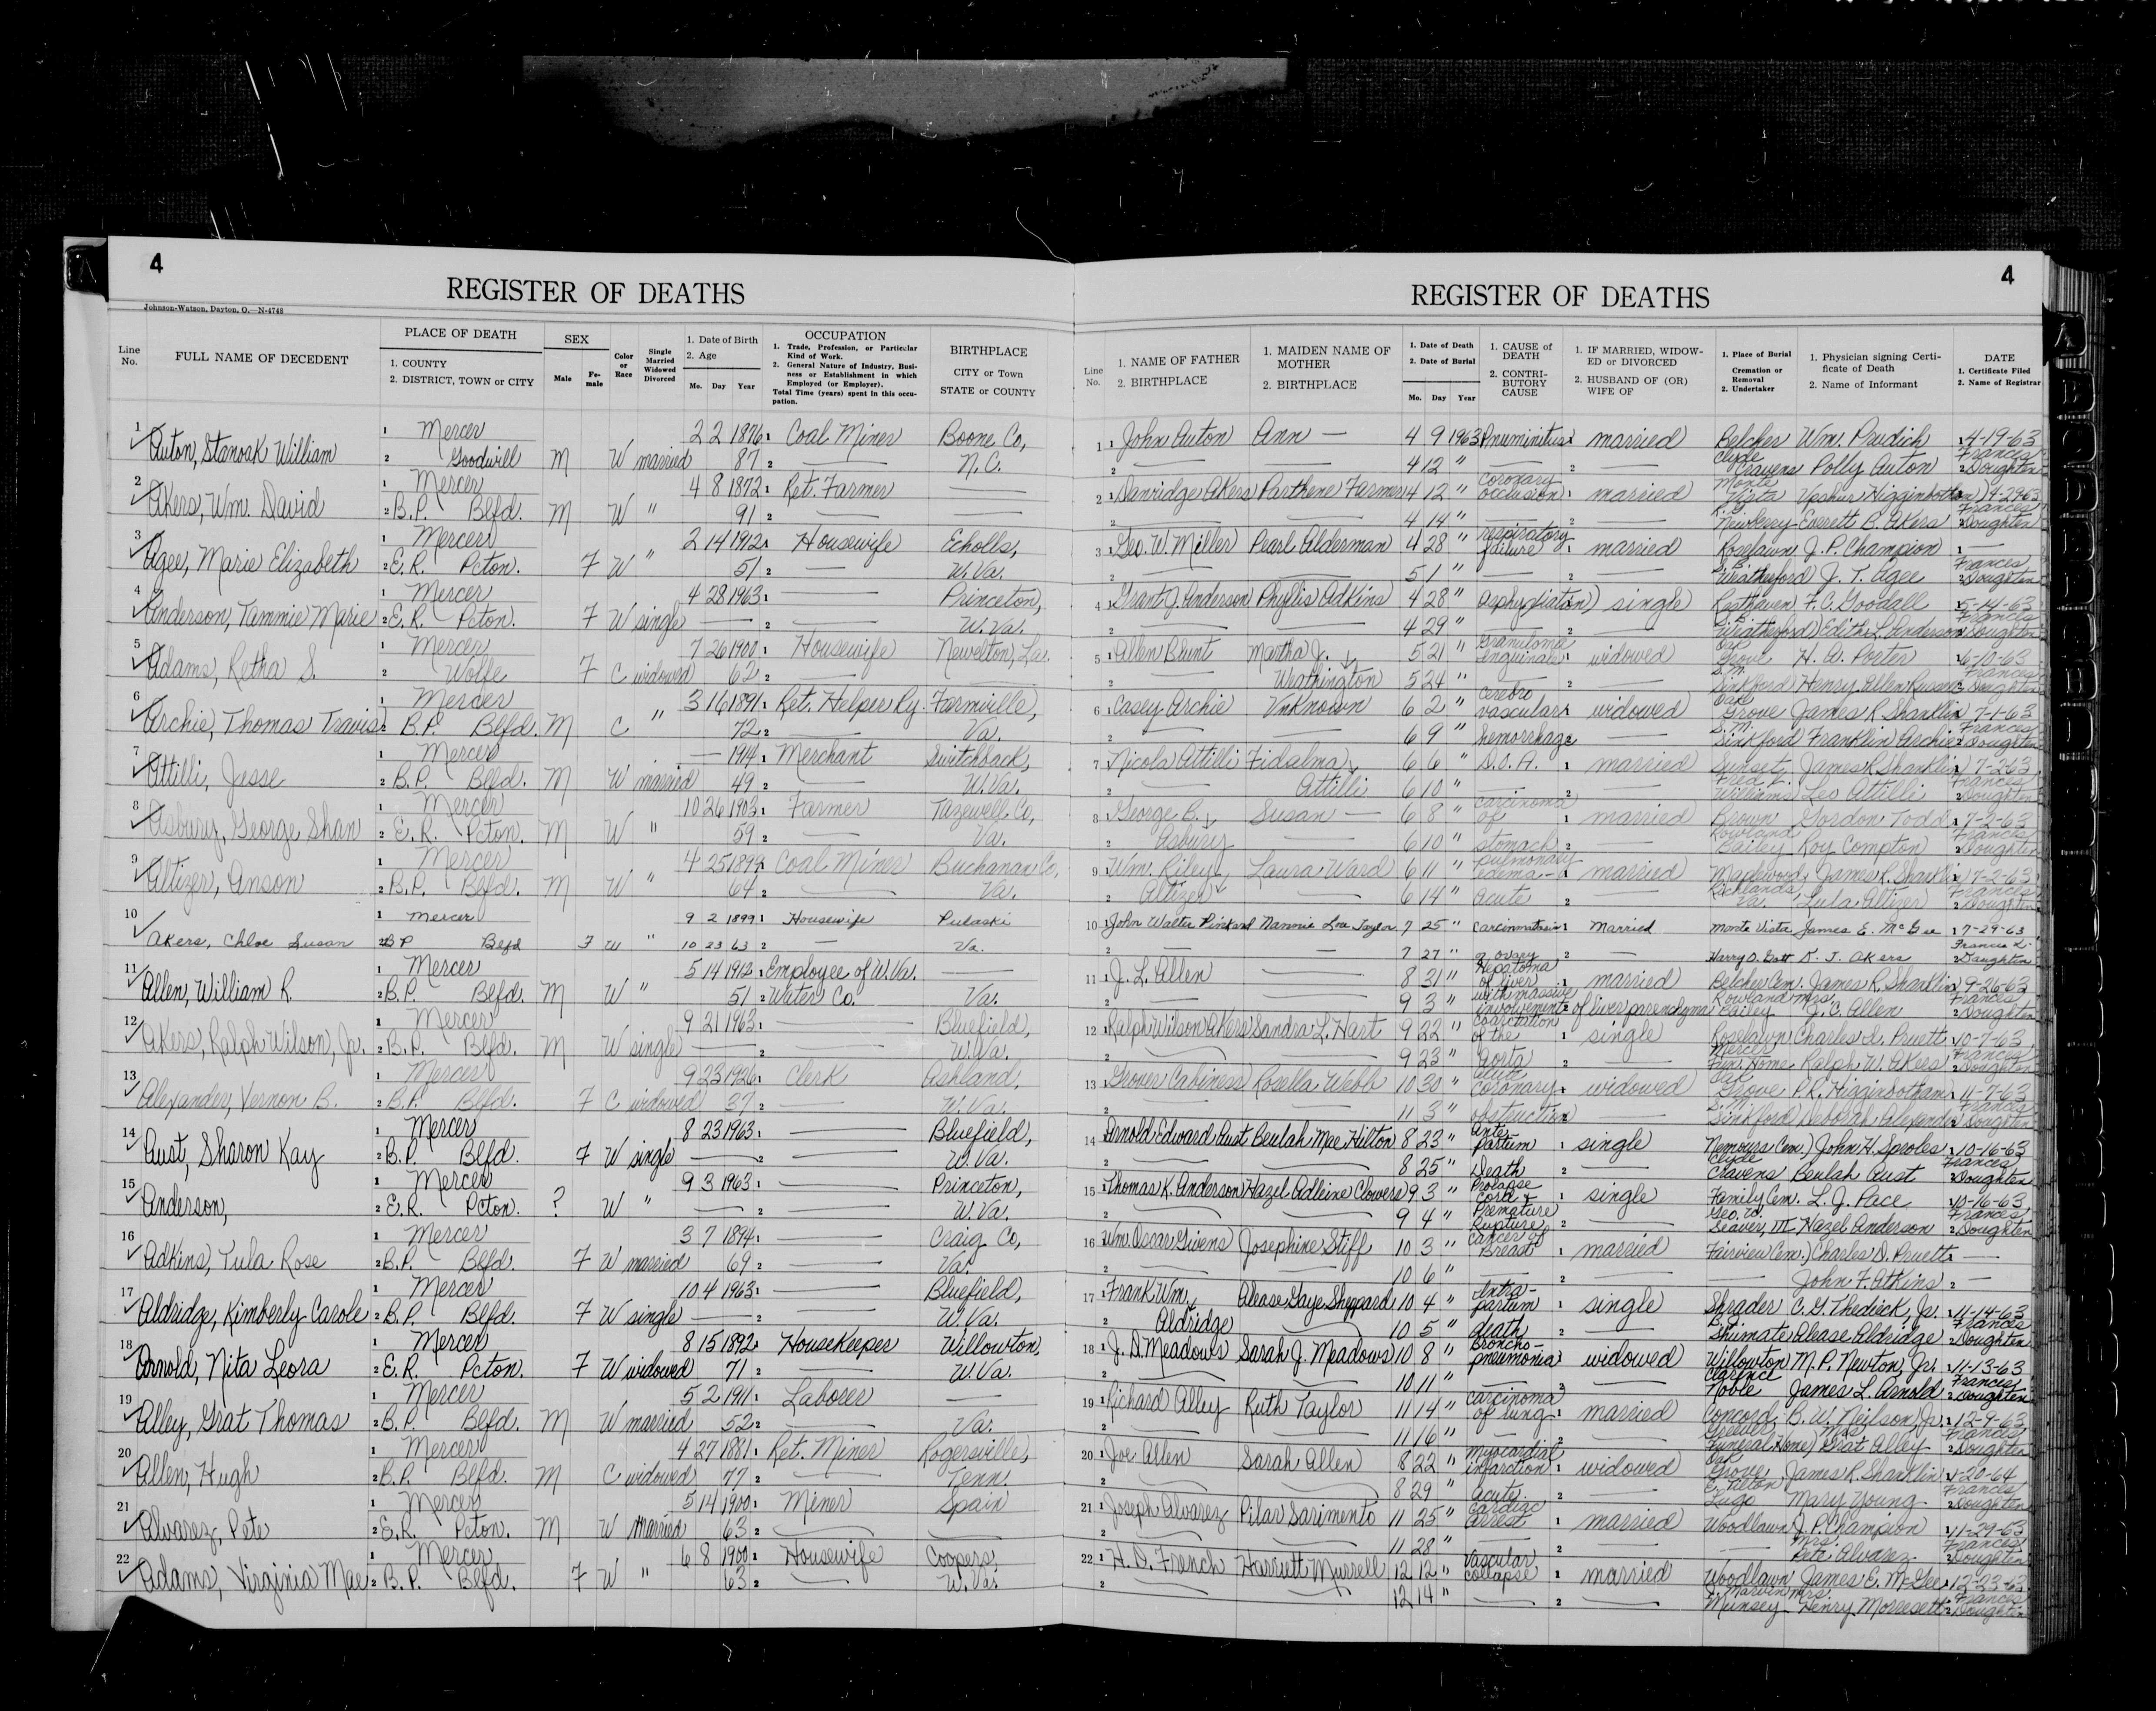 4
REGISTER OF DEATHS
Johnson-Watson, Dayton, O.—N-4748
Line No.
FULL NAME OF DECEDENT
PLACE OF DEATH
1. COUNTY
2. DISTRICT, TOWN or CITY
SEX
Male
Fe-male
Color or Race
Single Married Widowed Divorced
1. Date of Birth
2. Age
Mo. Day Year
OCCUPATION
1. Trade, Profession, or Particular Kind of Work.
2. General Nature of Industry, Business or Establishment in which Employed (or Employer).
Total Time (years) spent in this occupation.
BIRTHPLACE
CITY or Town
STATE or COUNTY
1 1 Mercer 2 2 1876 1 Coal Miner Boone Co,
Auton, Stanoak William 2 Goodwill M W married 87 2 — N.C.
2 1 Mercer 4 8 1872 1 Ret. Farmer —
Akers, Wm. David 2 B.P. Blfd. M W " 91 2 — —
3 1 Mercer 2 14 1912 1 Housewife Echolls,
Agee, Marie Elizabeth 2 E.R. Pcton. F W " 51 2 — W.Va.
4 1 Mercer 4 28 1963 1 — Princeton,
Anderson, Tammie Marie 2 E.R. Pcton. F W single — 2 — W.Va.
5 1 Mercer 7 26 1900 1 Housewife Newelton, La.
Adams, Retha S. 2 Wolfe F C widowed 62 2 —
6 1 Mercer 3 16 1891 1 Ret. Helper Ry. Farmville,
Archie, Thomas Travis 2 B.P. Blfd. M C " 72 2 — Va.
7 1 Mercer — 1914 1 Merchant Switchback,
Attilli, Jesse 2 B.P. Blfd. M W married 49 2 — W.Va.
8 1 Mercer 10 26 1903 1 Farmer Tazewell Co,
Asbury, George Shan 2 E.R. Pcton. M W " 59 2 — Va.
9 1 Mercer 4 25 1899 1 Coal Miner Buchanan Co,
Altizer, Anson 2 B.P. Blfd. M W " 64 2 — Va.
10 1 Mercer 9 2 1899 1 Housewife Pulaski
Akers, Chloe Susan 2 BP Blfd F W " 10 23 63 2 — Va.
11 1 Mercer 5 14 1912 1 Employee of W.Va. —
Allen, William R. 2 B.P. Blfd. M W " 51 2 Water Co. Va.
12 1 Mercer 9 21 1963 1 — Bluefield,
Akers, Ralph Wilson, Jr. 2 B.P. Blfd. M W single — 2 — W.Va.
13 1 Mercer 9 23 1926 1 Clerk Ashland,
Alexander, Vernon B. 2 B.P. Blfd. F C widowed 37 2 — W.Va.
14 1 Mercer 8 23 1963 1 — Bluefield,
Aust, Sharon Kay 2 B.P. Blfd. F W single — 2 — W.Va.
15 1 Mercer 9 3 1963 1 — Princeton,
Anderson, 2 E.R. Pcton. ? W " — 2 — W.Va.
16 1 Mercer 3 7 1894 1 — Craig Co,
Adkins, Tula Rose 2 B.P. Blfd. F W married 69 2 — Va.
17 1 Mercer 10 4 1963 1 — Bluefield,
Aldridge, Kimberly Carole 2 B.P. Blfd. F W single — 2 — W.Va.
18 1 Mercer 8 15 1892 1 HouseKeeper Willowton,
Arnold, Nita Leora 2 E.R. Pcton. F W widowed 71 2 — W.Va.
19 1 Mercer 5 2 1911 1 Laborer —
Alley, Grat Thomas 2 B.P. Blfd. M W married 52 2 — Va.
20 1 Mercer 4 27 1881 1 Ret. Miner Rogersville,
Allen, Hugh 2 B.P. Blfd. M C widowed 77 2 — Tenn.
21 1 Mercer 5 14 1900 1 Miner Spain
Alvarez, Pete 2 E.R. Pcton. M W married 63 2 — —
22 1 Mercer 6 8 1900 1 Housewife Coopers,
Adams, Virginia Mae 2 B.P. Blfd. F W " 63 2 — W.Va.
4
REGISTER OF DEATHS
Line No.
1. NAME OF FATHER
2. BIRTHPLACE
1. MAIDEN NAME OF MOTHER
2. BIRTHPLACE
1. Date of Death
2. Date of Burial
Mo. Day Year
1. CAUSE of DEATH
2. CONTRIBUTORY CAUSE
1. IF MARRIED, WIDOWED or DIVORCED
2. HUSBAND OF (OR) WIFE OF
1. Place of Burial Cremation or Removal
2. Undertaker
1. Physician signing Certificate of Death
2. Name of Informant
DATE
1. Certificate Filed
2. Name of Registrar
1 1 John Auton Ann — 4 9 1963 Pnuminitus 1 married Belcher Wm. Prudich 1 4-19-63
2 — — 4 12 " — 2 — Clyde Cravens Polly Auton 2 Frances Doughten
2 1 Danridge Akers Parthene Farmer 4 12 " coronary occusion 1 married Monte Vista Upshur Higginbotham 4-29-63
2 — — 4 14 " — 2 — R.G. Newberry Everett B. Akers 2 Frances Doughten
3 1 Geo. W. Miller Pearl Alderman 4 28 " respiratory failure 1 married Roselawn J. P. Champion 1 —
2 — — 5 1 " — 2 — B. Weatherford J. T. Agee 2 Frances Doughten
4 1 Grant J. Anderson Phyllis Adkins 4 28 " Asphyxiation single Resthaven F. C. Goodall 1 5-14-63
2 — — 4 29 " — 2 — B. Weatherford Edith L. Anderson 2 Frances Doughten
5 1 Allen Blunt Martha J. 5 21 " Granuloma Inguinale 1 widowed Oak Grove H. A. Porter 1 6-10-63
2 — Wrathington 5 24 " — 2 — S.M. Sinkford Henry Allen 2 Frances Doughten
6 1 Casey Archie Unknown 6 2 " cerebro vascular 1 widowed Oak Grove James R. Shanklin 7-1-63
2 — — 6 9 " hemorrhage 2 — S.M. Sinkford Franklin Archie 2 Frances Doughten
7 1 Nicola Attilli Fidalma 6 6 " D.O.A. 1 married Sunset James R. Shanklin 7-2-63
2 — Attilli 6 10 " — 2 — Fred L. Williams Leo Attilli 2 Frances Doughten
8 1 George B. Susan — 6 8 " carcinoma of 1 married Brown Gordon Todd 1 7-2-63
2 Asbury 6 10 " stomach 2 — Rowland Bailey Roy Compton 2 Frances Doughten
9 1 Wm. Riley Laura Ward 6 11 " pulmonary edema- 1 married Maplewood James R. Shanklin 7-2-63
2 Altizer — 6 14 " acute 2 — Richlands Va. Lula Altizer 2 Frances Doughten
10 1 John Walter Pinkard Nannie Lou Taylor 7 25 " carcinomatosis 1 Married Monte Vista James E. McGee 1 7-29-63
2 — — 7 27 " of ovary 2 — Harry O. D. J. Akers 2 Frances L. Doughten
11 1 J. L. Allen — 8 31 " Hepatoma of liver 1 married Belcher Cem. James R. Shanklin 9-26-63
2 — — 9 3 " with massive involvement 2 of liver parenchyma Rowland Bailey Mrs. J. C. Allen 2 Frances Doughten
12 1 Ralph Wilson Akers Sandra L. Hart 9 22 " coarctation of the 1 single Roselawn Charles D. Pruett 10-7-63
2 — — 9 23 " Aorta 2 — Mercer Fun. Home Ralph W. Akers 2 Frances Doughten
13 1 Grover Cabiness Rosella Webb 10 30 " acute coronary 1 widowed Oak Grove P.R. Higginbotham 11-7-63
2 — — 11 3 " obstruction — S.M. Sinkford Deborah Alexander 2 Frances Doughten
14 1 Arnold Edward Aust Beulah Mae Hilton 8 23 " Ante partum 1 single Nemours Cem. John H. Sproles 1 10-16-63
2 — — 8 25 " Death 2 — Clyde Cravens Beulah Aust 2 Frances Doughten
15 1 Thomas K. Anderson Hazel Adleine Clowers 9 3 " Prolapse Cord & 1 single Family Cem. L. J. Pace 10-16-63
2 — — 9 4 " Premature Rupture 2 — Geo. W. Seaver, III Hazel Anderson 2 Frances Doughten
16 1 Wm. Oscar Givens Josephine Stiff 10 3 " cancer of Breast 1 married Fairview Cem. Charles D. Pruett 1 —
2 — — 10 6 " — 2 — — John F. Atkins 2 —
17 1 Frank Wm. Alease Gaye Sheppard 10 4 " Intra-partum 1 single Shrader C. G. Thedieck, Jr. 1 11-14-63
2 Aldridge — 10 5 " death 2 — Shumate Alease Aldridge 2 Frances Doughten
18 1 J. D. Meadows Sarah J. Meadows 10 8 " Broncho-pneumonia 1 widowed Willowton M. P. Newton, Jr. 11-13-63
2 — — 10 11 " — 2 — Clarence Noble James L. Arnold 2 Frances Doughten
19 1 Richard Alley Ruth Taylor 11 14 " carcinoma of lung 1 married Concord B. W. Neilson, Jr. 1 12-9-63
2 — — 11 16 " — 2 — Greever Funeral Home Mrs. Grat Alley 2 Frances Doughten
20 1 Joe Allen Sarah Allen 8 22 " myocardial infarction 1 widowed Oak Grove James R. Shanklin 1-20-64
2 — — 8 29 " acute 2 — E. Tilton Lugo Mary Young 2 Frances Doughten
21 1 Joseph Alvarez Pilar Sarimento 11 25 " cardiac arrest 1 married Woodlawn J. P. Champion 11-29-63
2 — — 11 28 " — 2 — — Mrs. Pete Alvarez 2 Frances Doughten
22 1 H. D. French Harriett Murrell 12 12 " Vascular collapse 1 married Woodlawn James E. McGee 12-23-63
2 — — 12 14 " — 2 — Marvin Munsey Mrs. Henry Morresett 2 Frances Doughten